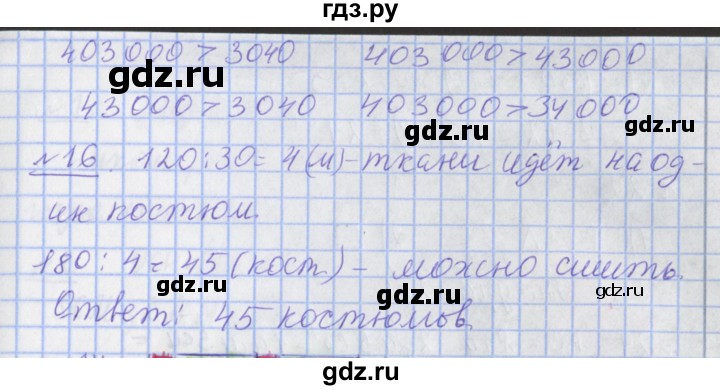 гдз.ру
403 000 > 3040 403 000 > 43 000
gdz.ru gdz.ru
43 000 > 3 040 403000 > 34 000
gdz.ru gdz.ru
№16. 120:30= 4(м)-ткани идёт на од-
gdz.ru
ин костюм.
gdz.ru
180: 4 = 45 (кост.) - можно сшить.
gdz.ru gdz.ru gdz.ru
Ответ: 45 костюмов.
gdz.ru